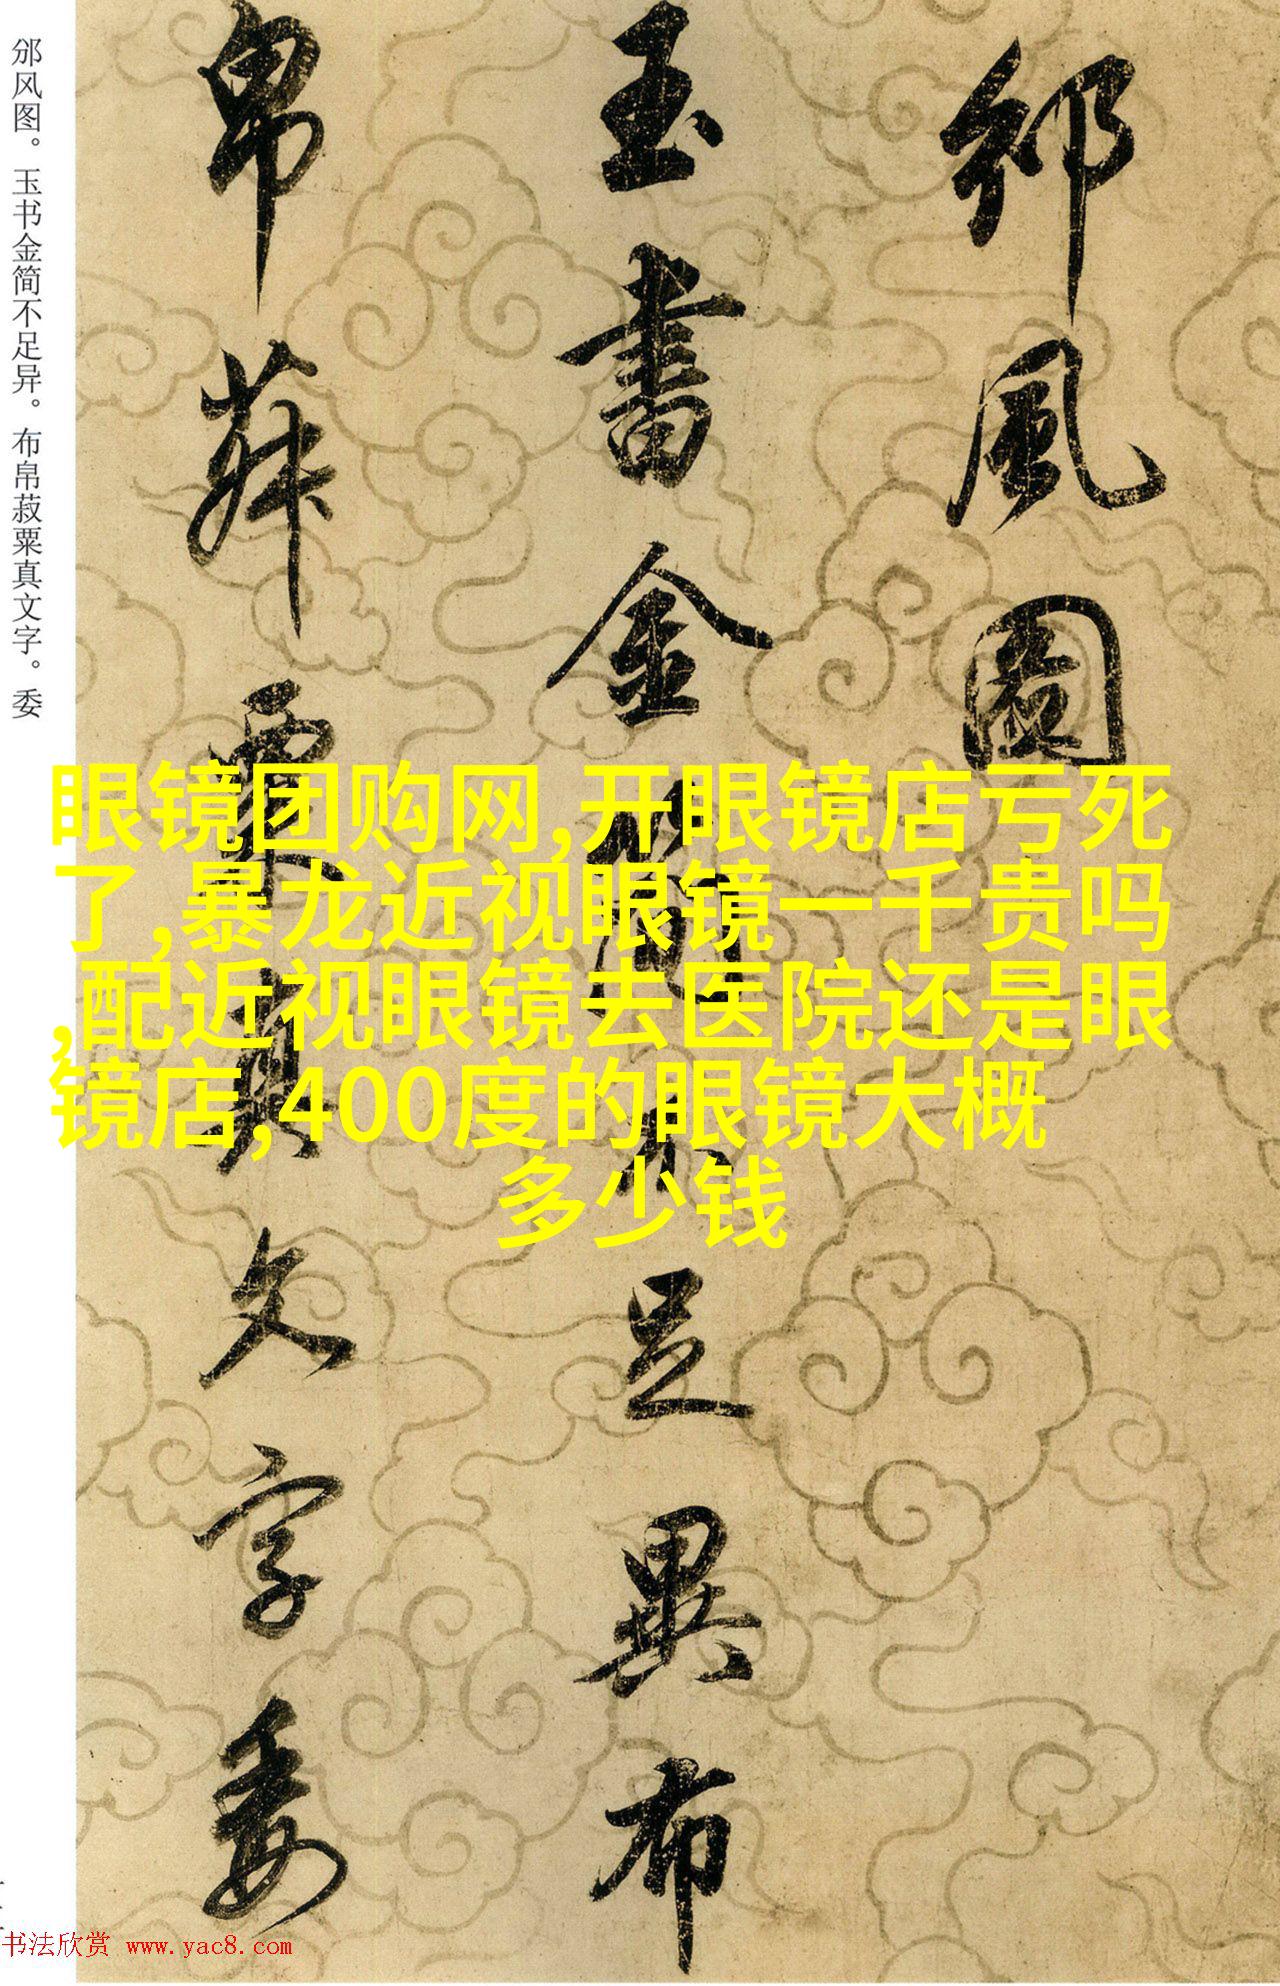 邠风图。玉书金简不足异。布帛菽粟真文字。委
邠風圖
玉書金簡不足異布
帛菽粟真文字委
眼镜团购网,开眼镜店亏死
了,暴龙近视眼镜一千贵吗
,配近视眼镜去医院还是眼
镜店,400度的眼镜大概
多少钱
书法欣赏 www.yac8.com